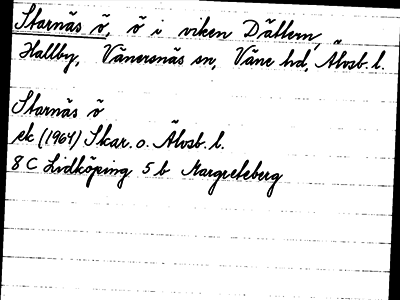 Starnäs ö, ö i viken Dättern,
Hallby, Vänersnäs sn, Väne hd, Älvsb. l.
Starnäs ö
ek (1964) Skar. o. Älvsb. l.
8 C Lidköping 5 b Margreteberg